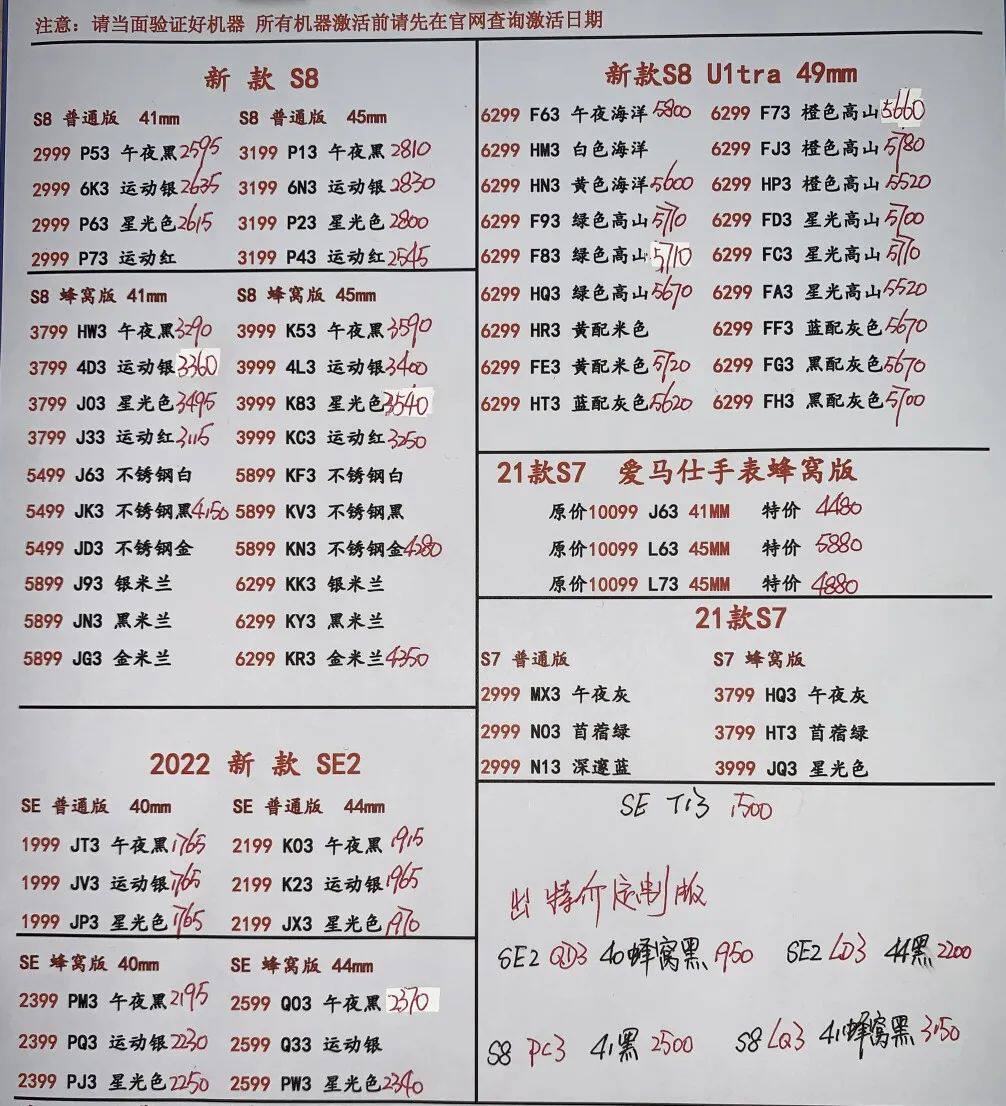 注意：请当面验证好机器 所有机器激活前请先在官网查询激活日期
新 款 S8
S8 普通版 41mm S8 普通版 45mm
2999 P53 午夜黑 2595 3199 P13 午夜黑 2810
2999 6K3 运动银 2635 3199 6N3 运动银 2830
2999 P63 星光色 2615 3199 P23 星光色 2800
2999 P73 运动红 3199 P43 运动红 2545
S8 蜂窝版 41mm S8 蜂窝版 45mm
3799 HW3 午夜黑 3290 3999 K53 午夜黑 3590
3799 4D3 运动银 3360 3999 4L3 运动银 3400
3799 J03 星光色 3495 3999 K83 星光色 3540
3799 J33 运动红 3115 3999 KC3 运动红 3250
5499 J63 不锈钢白 5899 KF3 不锈钢白
5499 JK3 不锈钢黑 4150 5899 KV3 不锈钢黑
5499 JD3 不锈钢金 5899 KN3 不锈钢金 4280
5899 J93 银米兰 6299 KK3 银米兰
5899 JN3 黑米兰 6299 KY3 黑米兰
5899 JG3 金米兰 6299 KR3 金米兰 4350
2022 新 款 SE2
SE 普通版 40mm SE 普通版 44mm
1999 JT3 午夜黑 1765 2199 K03 午夜黑 1915
1999 JV3 运动银 1765 2199 K23 运动银 1965
1999 JP3 星光色 1765 2199 JX3 星光色 1970
SE 蜂窝版 40mm SE 蜂窝版 44mm
2399 PM3 午夜黑 2195 2599 Q03 午夜黑 2370
2399 PQ3 运动银 2230 2599 Q33 运动银
2399 PJ3 星光色 2250 2599 PW3 星光色 2340
新款S8 U1tra 49mm
6299 F63 午夜海洋 5800 6299 F73 橙色高山 5660
6299 HM3 白色海洋 6299 FJ3 橙色高山 5780
6299 HN3 黄色海洋 5600 6299 HP3 橙色高山 5520
6299 F93 绿色高山 5710 6299 FD3 星光高山 5700
6299 F83 绿色高山 5710 6299 FC3 星光高山 5770
6299 HQ3 绿色高山 5670 6299 FA3 星光高山 5520
6299 HR3 黄配米色 6299 FF3 蓝配灰色 5670
6299 FE3 黄配米色 5720 6299 FG3 黑配灰色 5670
6299 HT3 蓝配灰色 5620 6299 FH3 黑配灰色 5700
21款S7 爱马仕手表蜂窝版
原价10099 J63 41MM 特价 4480
原价10099 L63 45MM 特价 5880
原价10099 L73 45MM 特价 4880
21款S7
S7 普通版 S7 蜂窝版
2999 MX3 午夜灰 3799 HQ3 午夜灰
2999 NO3 苜蓿绿 3799 HT3 苜蓿绿
2999 N13 深邃蓝 3999 JQ3 星光色
SE T13 1500
出 特价 定制版
SE2 QD3 40蜂窝黑 1950 SE2 LD3 44黑 2200
S8 PC3 41黑 2500 S8 LQ3 41蜂窝黑 3150